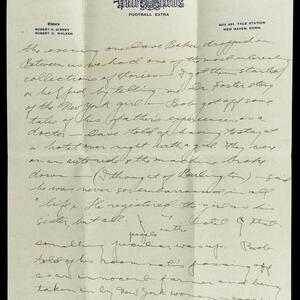 Editors
ROBERT D. BINNEY
ROBERT G. WALKER
Yale News
FOOTBALL EXTRA
BOX 497, YALE STATION
NEW HAVEN, CONN.
the evening one Dave Baker dropped in
Between us we had one of the most interesting
collections of stories - I got them started
or helped by telling me Dr. Foster story
of the New York girl - Bob got off some
tales of his father's experiences as a
doctor - Dave told of having to stay at
a hotel over night with a girl. They were
on an auto ride & the machine broke
down - (I thought of Burlington) - said
he was never so embarrassed in all
life. He registered the girl as his
sister but all hotel
people
something peculiar was up. Bob
told of his roommate's passing off
as an innocent farmer and being
taken in by New York woman